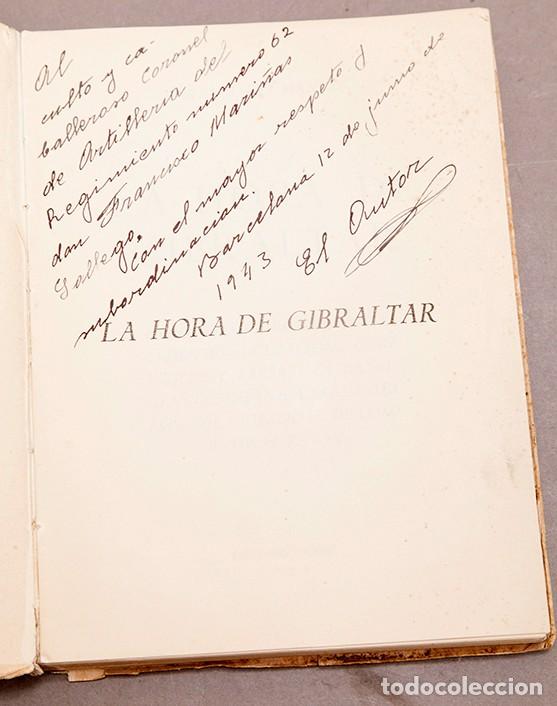 Al
culto y ca-
balleroso Coronel
de Artilleria del
Regimiento numero 62
don Francisco Mariñas
Gallego,
Con el mayor respeto y
subordinacion.
Barcelona 12 de junio de
1943 El Autor
LA HORA DE GIBRALTAR
todocoleccion